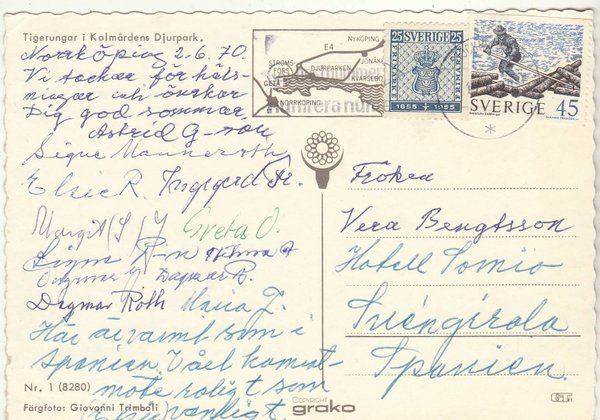 Tigerungar i Kolmårdens Djurpark.
Norrköping 2.6.70.
Vi tackar för häls-
ningar och önskar
Dig god sommar.
Astrid G-son
Signe
Elsie R. Ingegerd
Margit Greta O.
Signe
Dagmar Roth Maria J.
Här är varmt som i
Spanien. Väl
möte roligt som
vanligt.
Nr. 1 (8280)
Färgfoto: Giovanni Trimboli
E4
NYKÖPING
STRÖMS
FORS
DJURPARKEN
NORRKÖPING
25 SVERIGE 25
1855 1955
SVERIGE 45
Fröken
Vera Bengtsson
Hotell Somio
Fuengirola
Spanien.
COPYRIGHT
grako